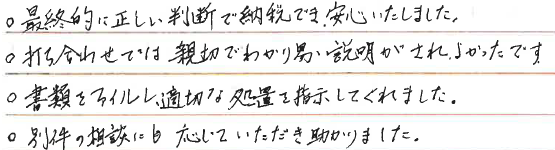 ○ 最終的に正しい判断で納税でき、安心いたしました。
○ 打ち合わせでは親切でわかり易い説明がされ、よかったです
○ 書類をファイルし、適切な処置を指示してくれました。
○ 別件の相談にも応じていただき助かりました。